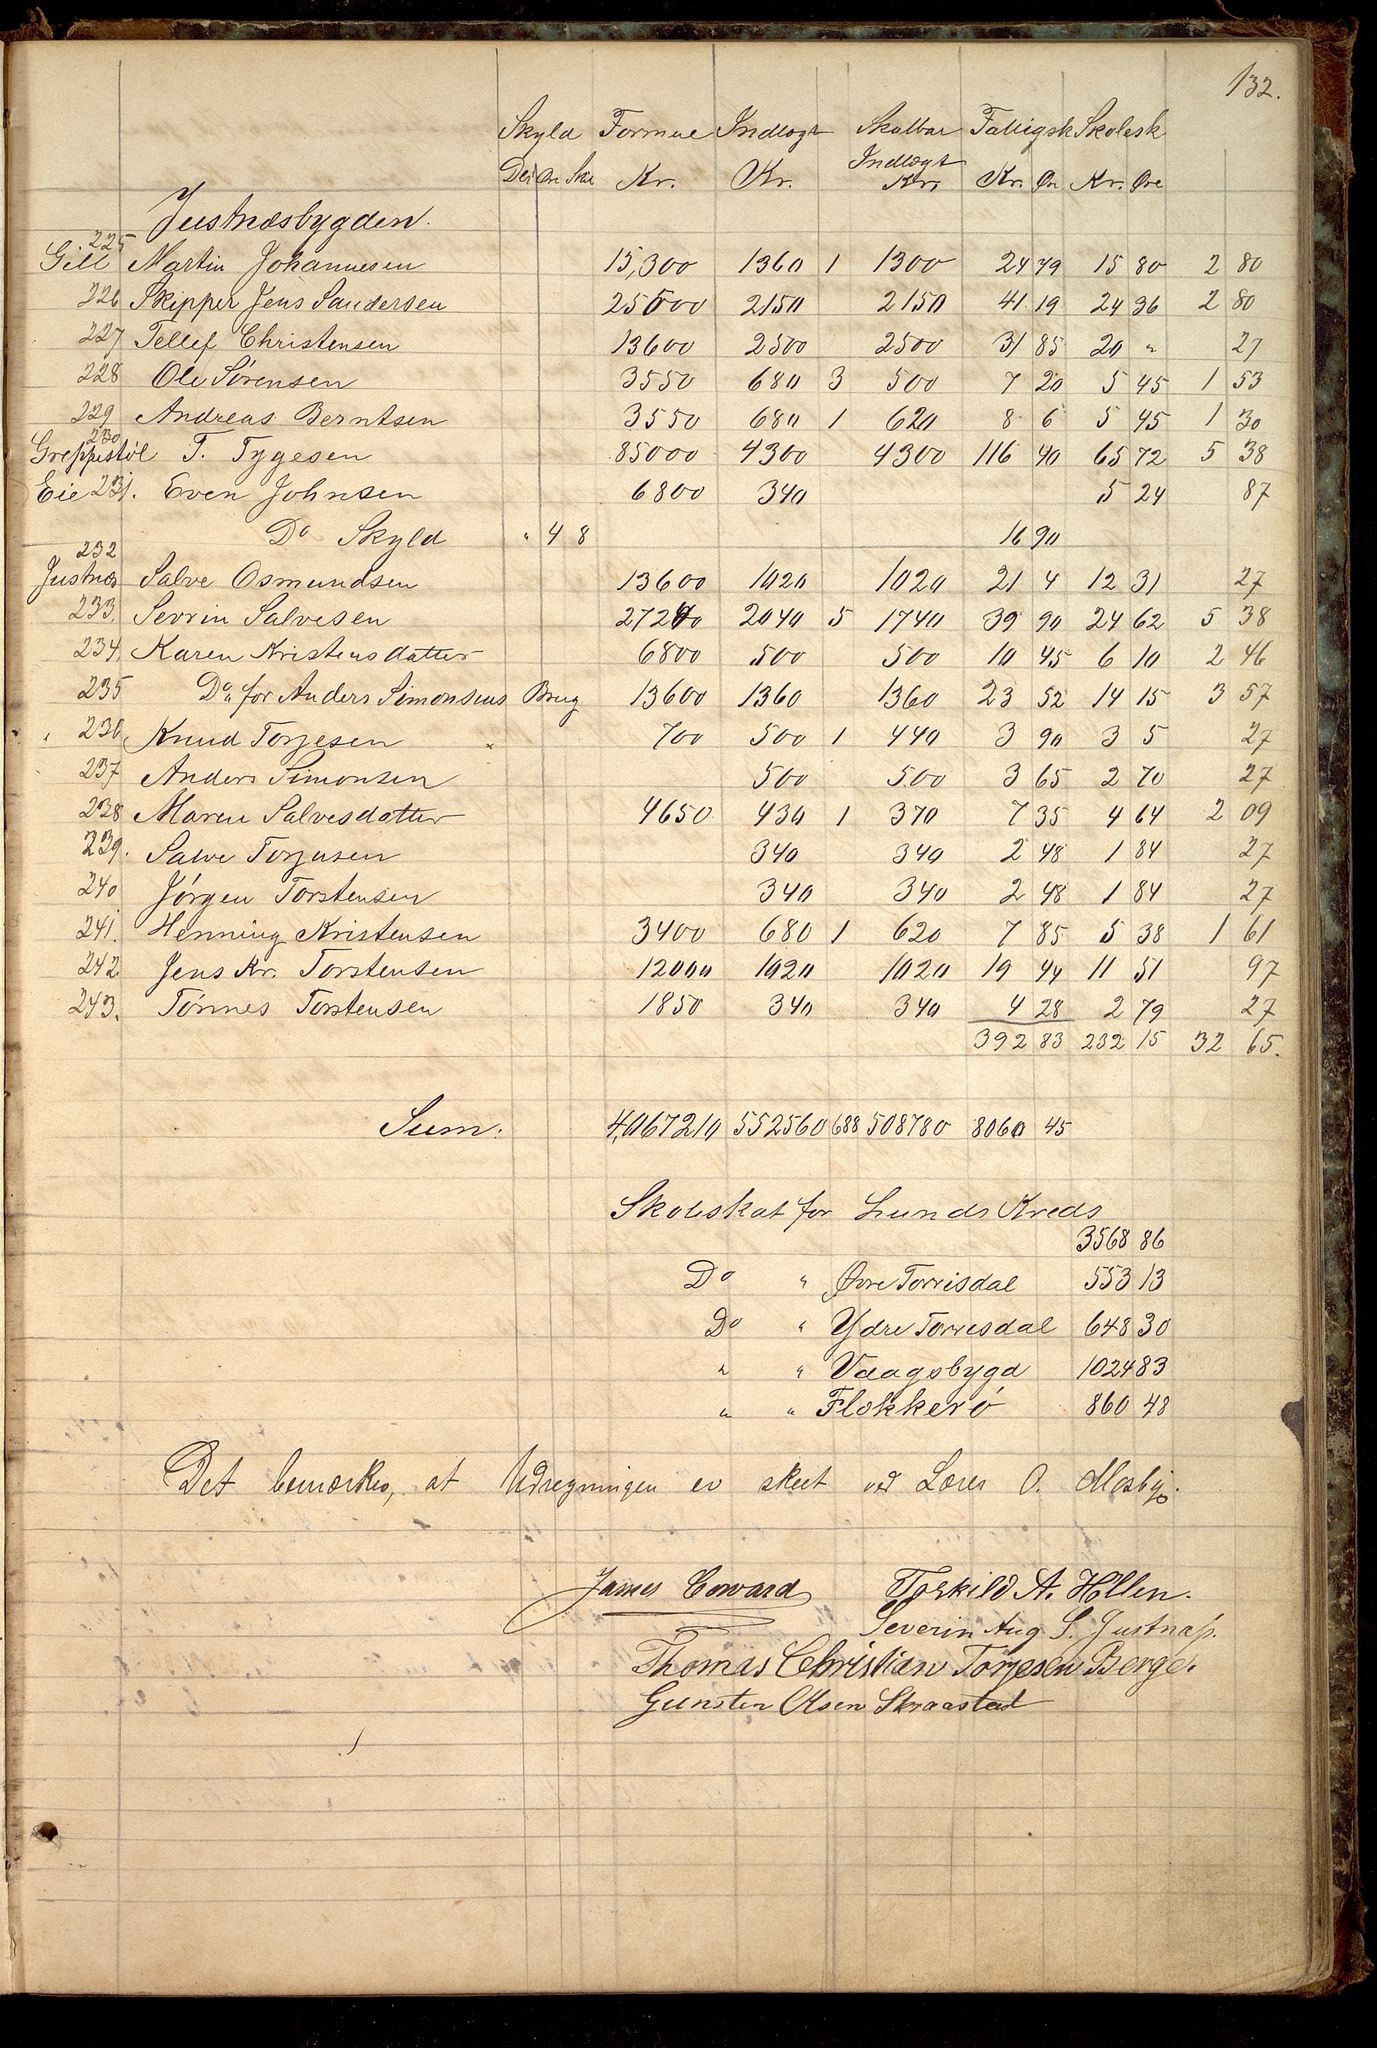 132.
Skyld Formue Indtægt Skatbar Fattigsk Skolesk
Indtægt
Dal Ort Skil Kr. Kr. Kr. Kr. Ør Kr. Øre
Justnæsbygden.
Gill 225 Martin Johannesen 15,300 1360 1 1300 24 79 15 80 2 80
226 Skipper Jens Sandersen 25500 2150 2150 41 19 24 36 2 80
227 Tellef Christensen 13600 2500 2500 31 85 20 " 27
228 Ole Sørensen 3550 680 3 500 7 20 5 45 1 53
229 Andreas Berntsen 3550 680 1 620 8 6 5 45 1 30
Greppestøl 230 T. Tygesen 85000 4300 4300 116 40 65 72 5 38
Eie 231. Even Johnsen 6800 340 5 24 87
Do Skyld " 4 8 16 90
Justnæs 232 Salve Osmundsen 13600 1020 1020 21 4 12 31 27
233. Sevrin Salvesen 27200 2040 5 1740 39 90 24 62 5 38
234. Karen Kristensdatter 6800 500 500 10 45 6 10 2 46
235 Do for Anders Simonsens Brug 13600 1360 1360 23 52 14 15 3 57
236 Knud Torjesen 700 500 1 440 3 90 3 5 27
237 Anders Simonsen 500 500 3 65 2 70 27
238 Maren Salvesdatter 4650 430 1 370 7 35 4 64 2 09
239. Salve Torjusen 340 340 2 48 1 84 27
240 Jørgen Torstensen 340 340 2 48 1 84 27
241. Henning Kristensen 3400 680 1 620 7 85 5 38 1 61
242 Jens Kr. Torstensen 12000 1020 1020 19 44 11 51 97
243. Tønnes Torstensen 1850 340 340 4 28 2 79 27
392 83 232 15 32 65.
Sum. 4,067210 552560 688 508780 8060 45
Skoleskat for Lunds Kreds
3568 86
Do " Øvre Torrisdal 553 13
Do " Ydre Torresdal 648 30
" " Vaagsbygd 1024 83
" " Flekkerø 860 48
Det bemærkes, at Udregningen er skeet ved Lærer O. Mosby.
James Coward Torkild A. Hllen.
Severin Aug S. Justnæs.
Thomas Christian Torjesen Berge.
Gunsten Olsen Skraastad